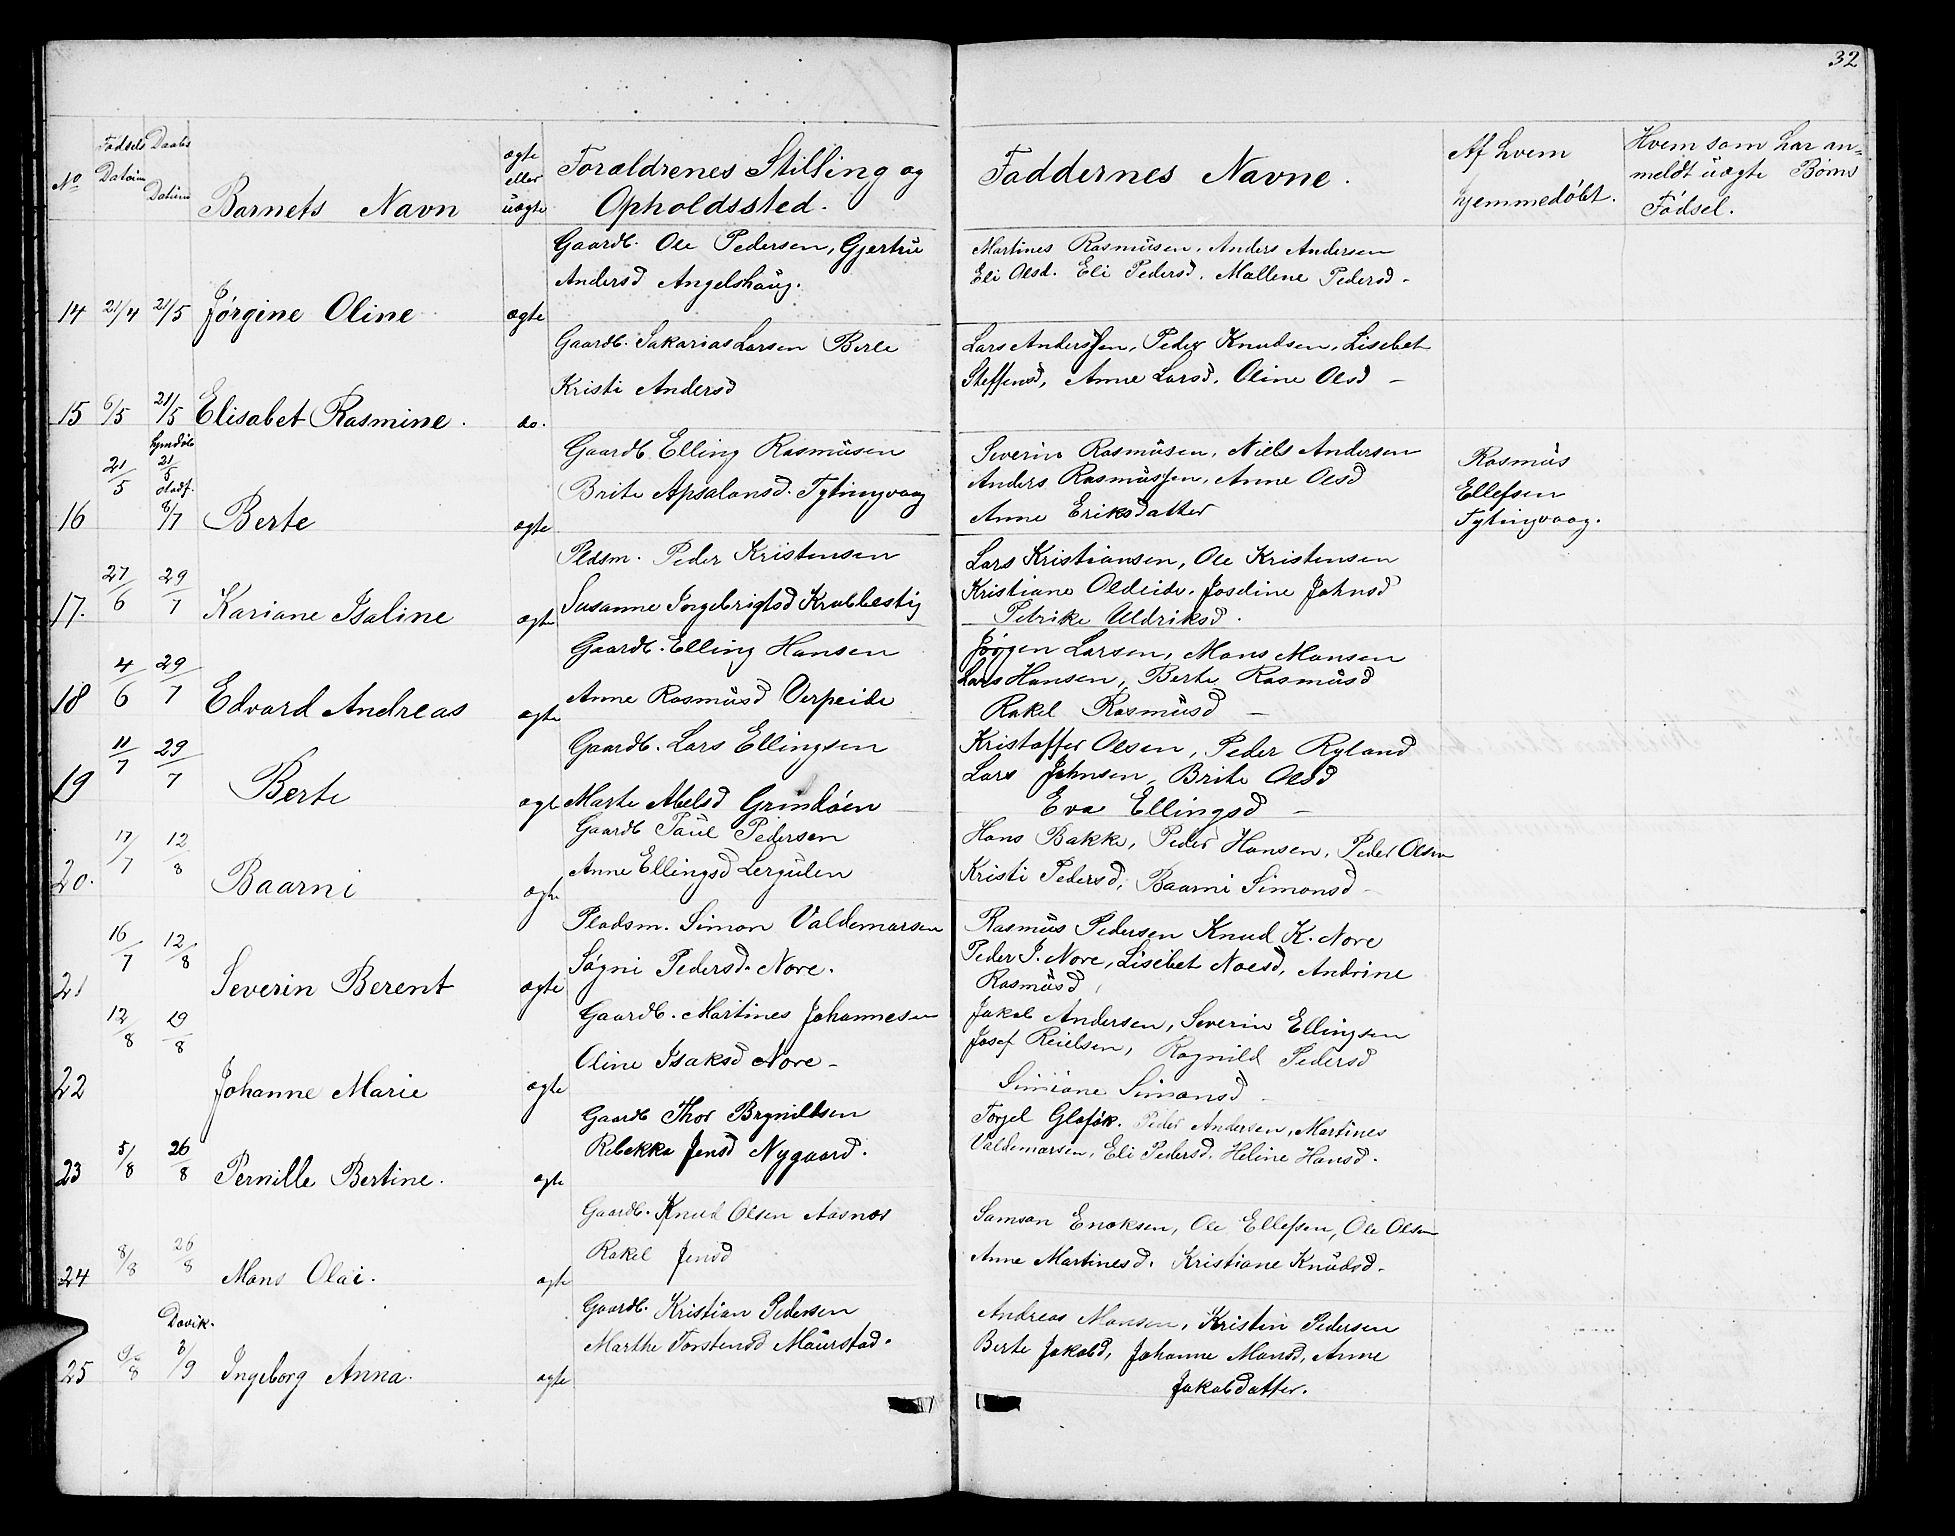 32
No
Fødsels Datum
Daabs Datum
Barnets Navn
ægte eller uægte
Forældrenes Stilling og
Opholdssted.
Faddernes Navne.
Af hvem
hjemmedøbt.
Hvem som har an=
meldt uægte Børns
Fødsel.
14 21/4 21/5 Jørgine Oline ægte
Gaardb. Ole Pedersen, Gjertru
Andersd Angelshaug.
Martines Rasmusen, Anders Andersen
Eli Olsd. Eli Pedersd. Mallene Pedersd -
15 6/5 21/5 Elisabet Rasmine. do.
Gaardb. Sakarias Larsen Berle
Kristi Andersd
Lars Anderssen, Peder Knudsen, Lisebet
Steffensd, Anne Larsd. Oline Olsd -
16 21/5 hjmdøb 21/5 stadf. 8/7 Berte ægte
Gaardb. Elling Rasmusen
Brite Apsalonsd. Tytingvaag
Severin Rasmusen, Niels Andersen
Anders Rasmussen, Anne Olsd
Anne Eriksdatter
Rasmus
Ellefsen
Tytingvaag.
17. 27/6 29/7 Kariane Isaline ægte
Pldsm. Peder Kristensen
Susanne Ingebrigtsd Krabbestig
Lars Kristiansen, Ole Kristensen
Kristiane Oldeide. Josdine Johnsd
Petrike Uldriksd.
18 4/6 29/7 Edvard Andreas ægte
Gaardb. Elling Hansen
Anne Rasmusd Verpeide
Jørgen Larsen, Mons Monsen
Lars Hansen, Berte Rasmusd
Rakel Rasmusd -
19 11/7 29/7 Berte ægt
Gaardb. Lars Ellingsen
Marte Abelsd Grindøen
Kristoffer Olsen, Peder Ryland
Lars Johnsen, Brite Olsd
Eva Ellingsd -
20. 17/7 12/8 Baarni ægte
Gaardb Paul Pedersen
Anne Ellingsd Lergulen
Hans Bakke, Peder Hansen, Peder Olsen
Kristi Pedersd, Baarni Simonsd -
21 16/7 12/8 Severin Berent ægte
Pladsm. Simon Valdemarsen
Søgni Pedersd. Nore.
Rasmus Pedersen Knud K. Nore
Peder J. Nore, Lisebet Noesd, Andrine
Rasmusd,
22 12/8 19/8 Johanne Marie ægte
Gaardb. Martines Johannesen
Oline Isaksd Nore -
Jakob Andersen, Severin Ellingsen
Josef Reielsen, Ragnild Pedersd
Simiane Simonsd -
23 5/8 26/8 Pernille Bertine. ægte
Gaardb Thor Brynildsen
Rebekka Jensd Nygaard.
Torgel Gloføk. Peder Andersen, Martines
Valdemarsen, Eli Pedersd. Heline Hansd.
24 8/8 26/8 Mons Olai. ægte
Gaardb. Knud Olsen Aasnæs
Rakel Jensd
Samson Enoksen, Ole Ellefsen, Ole Olsen
Anne Martinesd. Kristiane Knudsd -
25 /8 Davik. 2/9 Ingeborg Anna. ægte
Gaardb. Kristian Pedersen
Marthe Torstensd Maurstad.
Andreas Monsen, Kristen Pedersen
Berte Jakobd, Johanne Monsd, Anne
Jakobdatter.